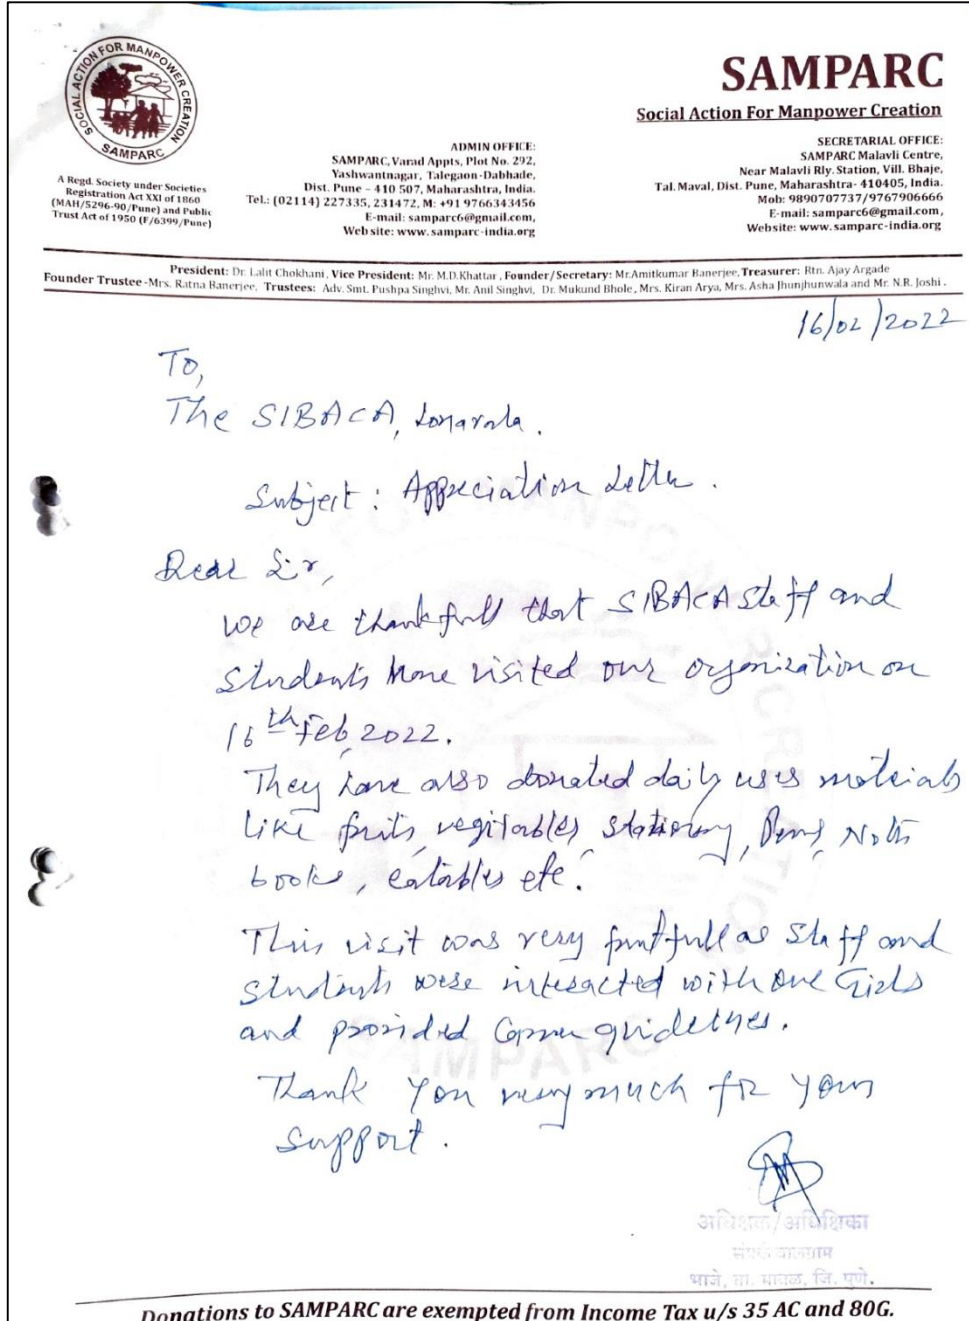 SOCIAL ACTION FOR MANPOWER CREATION
SAMPARC
A Regd. Society under Societies
Registration Act XXI of 1860
(MAH/5296-90/Pune) and Public
Trust Act of 1950 (F/6399/Pune)
ADMIN OFFICE:
SAMPARC, Varad Appts, Plot No. 292,
Yashwantnagar, Talegaon-Dabhade,
Dist. Pune - 410 507, Maharashtra, India.
Tel.: (02114) 227335, 231472, M: +91 9766343456
E-mail: samparc6@gmail.com,
Web site: www. samparc-india.org
SAMPARC
Social Action For Manpower Creation
SECRETARIAL OFFICE:
SAMPARC Malavli Centre,
Near Malavli Rly. Station, Vill. Bhaje,
Tal. Maval, Dist. Pune, Maharashtra- 410405, India.
Mob: 9890707737/9767906666
E-mail: samparc6@gmail.com,
Website: www. samparc-india.org
President: Dr. Lalit Chokhani, Vice President: Mr. M.D.Khattar, Founder/Secretary: Mr.Amitkumar Banerjee, Treasurer: Rtn. Ajay Argade
Founder Trustee-Mrs. Ratna Banerjee, Trustees: Adv. Smt. Pushpa Singhvi, Mr. Anil Singhvi, Dr. Mukund Bhole, Mrs. Kiran Arya, Mrs. Asha Jhunjhunwala and Mr. N.R. Joshi.
16/02/2022
To,
The SIBACA, Lonavala.
Subject: Appreciation Letter.
Dear Sir,
We are thankfull that SIBACA Staff and
Students have visited our organization on
16th Feb, 2022.
They have also donated daily uses materials
like fruits, vegitables, stationary, Pens, Note
books, eatables etc.
This visit was very fruitfull as staff and
students were interacted with our Girls
and provided guidelines.
Thank You very much for your
support.
अधिक्षक/अधिक्षिका
संपर्क बालग्राम
भाजे, ता. मावळ, जि. पुणे.
Donations to SAMPARC are exempted from Income Tax u/s 35 AC and 80G.